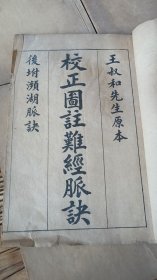 王叔和先生原本
校正圖註難經脈訣
後坿瀕湖脈訣